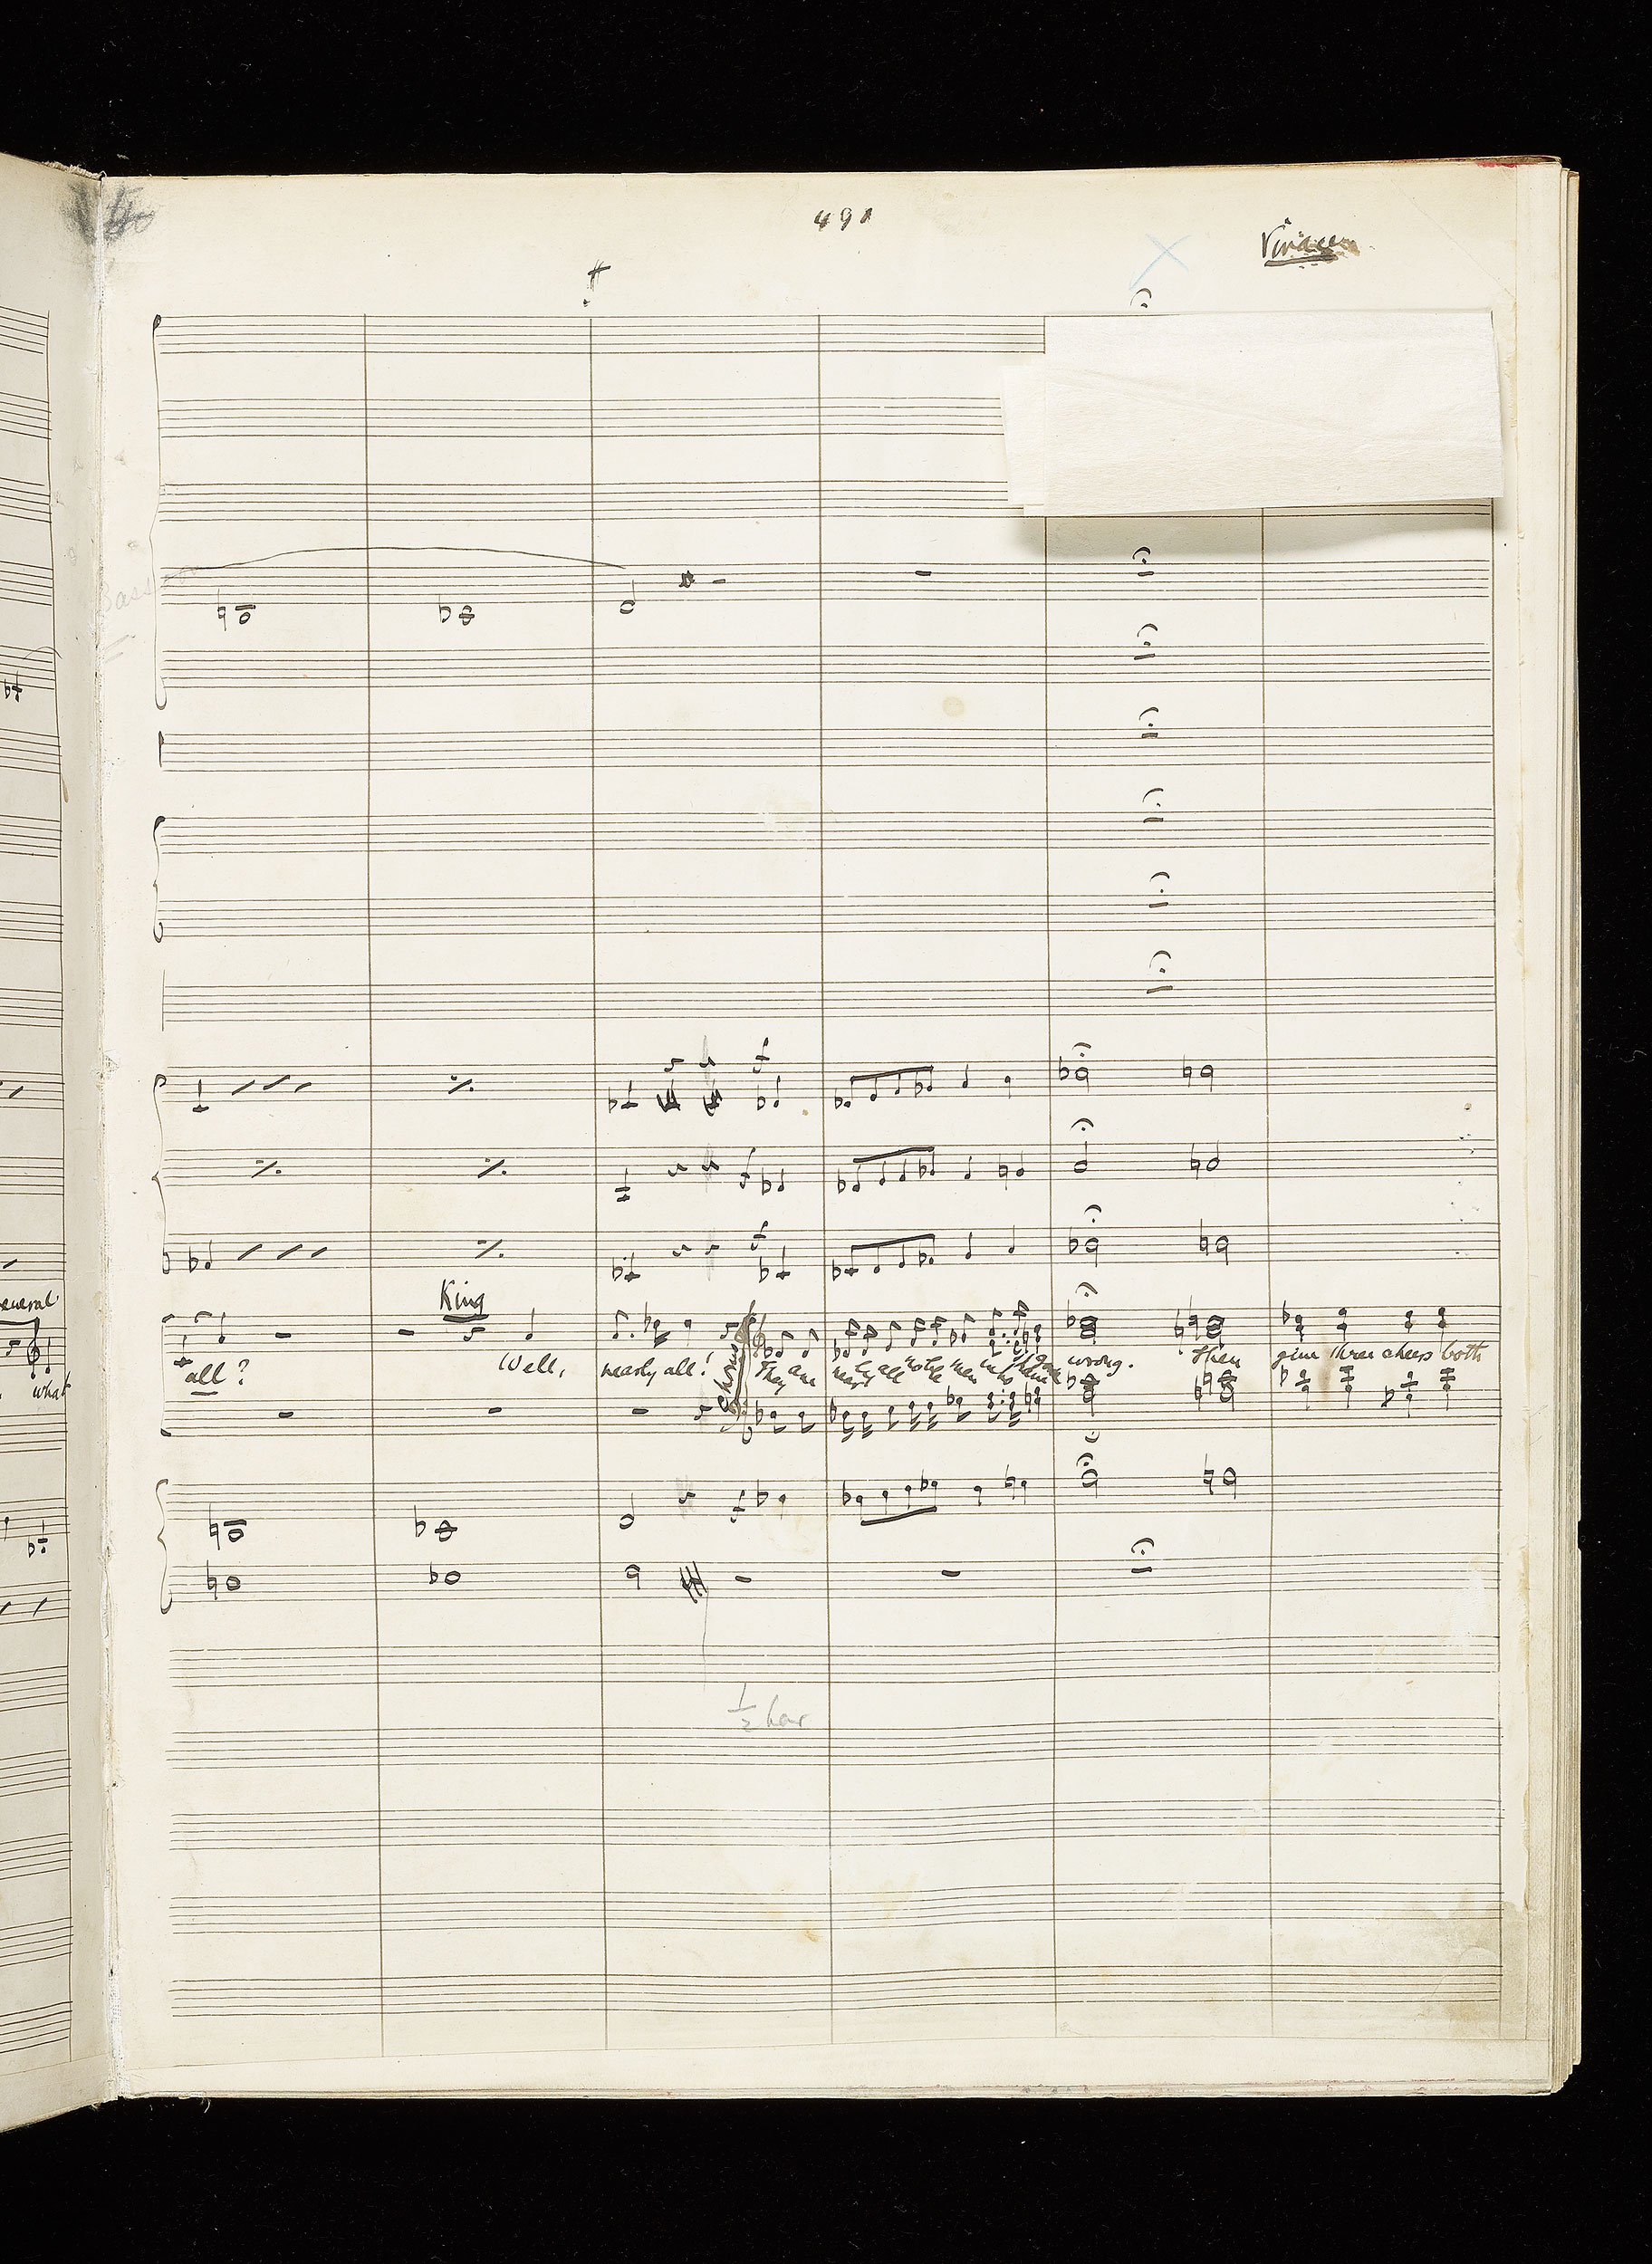 491
Vivace
Bass
eneral
King
all? Well, nearly all! They are nearly all noblemen who have gone wrong. Then give three cheers both
what
Chorus
½ bar